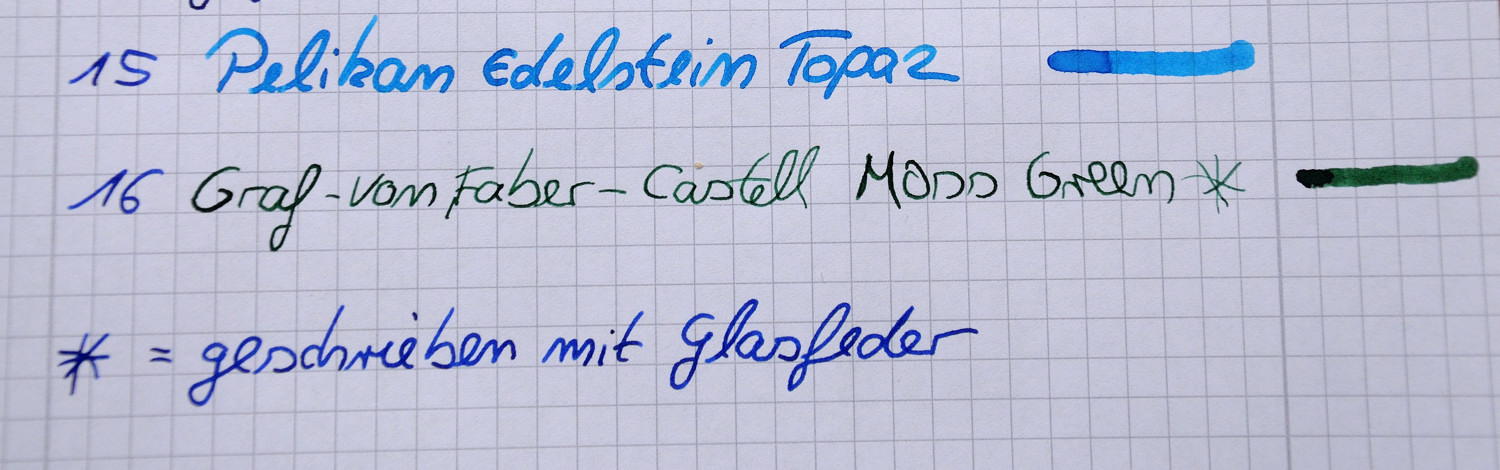 15 Pelikan Edelstein Topaz
16 Graf-von Faber-Castell Moss Green*
* = geschrieben mit Glasfeder